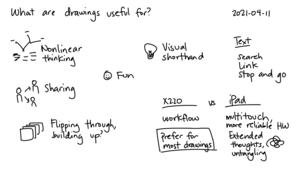 What are drawings useful for?
2021-04-11
Nonlinear
thinking
Visual
shorthand
Text
search
Link
stop and go
Fun
Sharing
Flipping through,
building up?
X220 vs iPad
workflow
prefer for
most drawings
multitouch,
more reliable HW
Extended
thoughts,
untangling